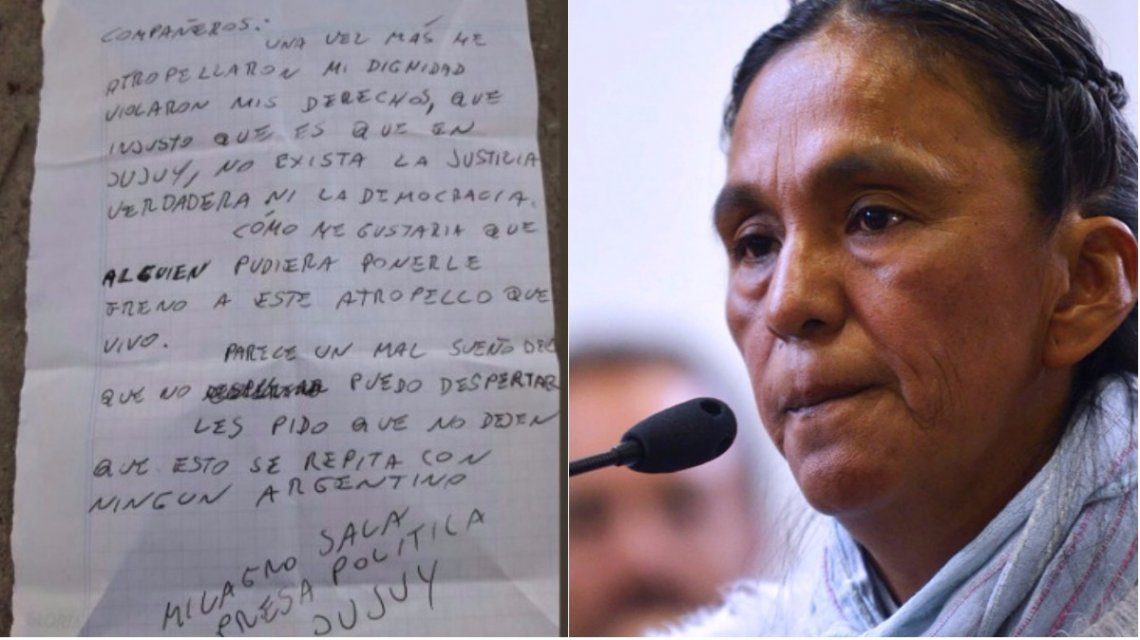 COMPAÑEROS:
UNA VEZ MÁS ME
ATROPELLARON MI DIGNIDAD
VIOLARON MIS DERECHOS, QUE
INJUSTO QUE ES QUE EN
JUJUY, NO EXISTA LA JUSTICIA
VERDADERA NI LA DEMOCRACIA.
CÓMO ME GUSTARIA QUE
ALGUIEN PUDIERA PONERLE
FRENO A ESTE ATROPELLO QUE
VIVO.
PARECE UN MAL SUEÑO DEL
QUE NO PUEDO DESPERTAR
LES PIDO QUE NO DEJEN
QUE ESTO SE REPITA CON
NINGUN ARGENTINO
MILAGRO SALA
PRESA POLITICA
JUJUY